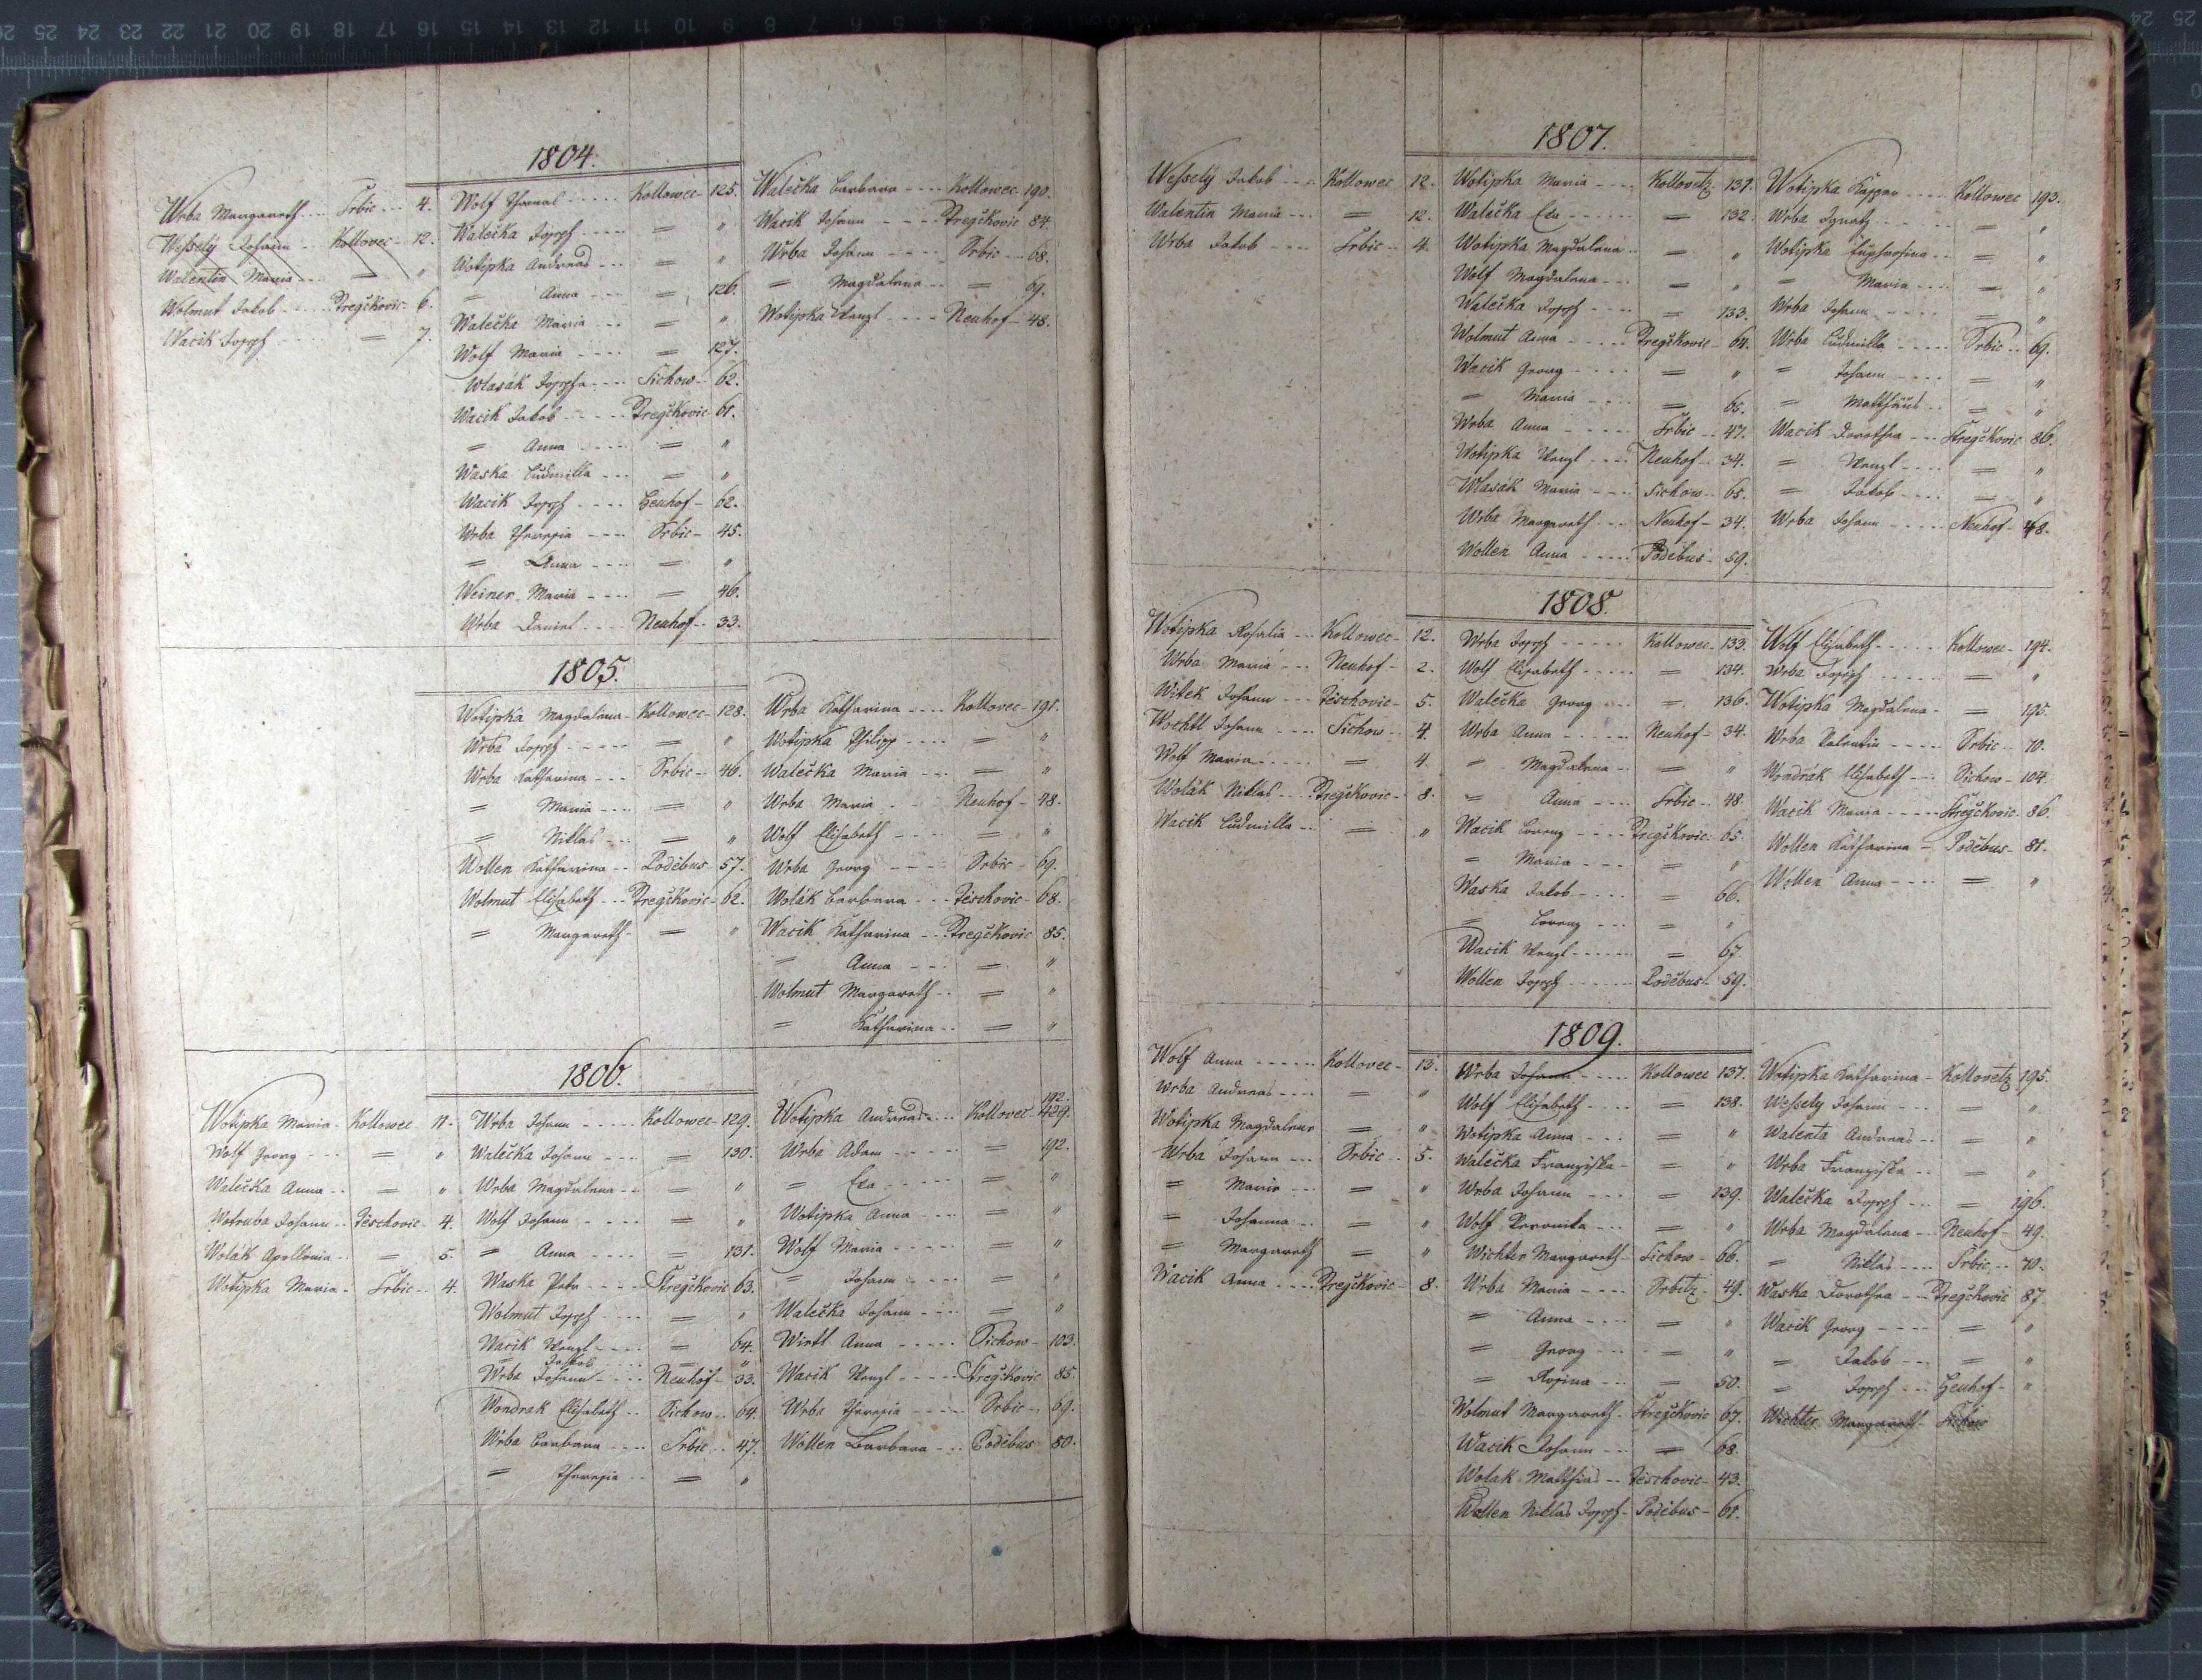 1804.
Wrba Margareth Srbic 4.
Wessely Johann Kollowec 12.
Walentin Maria = "
Wolmut Jakob Stregčkovic 6.
Wacik Joseph = 7.
Wolf Thomas Kollowec 125.
Walečka Joseph = "
Wotipka Andreas = "
= Anna = 126.
Walečka Maria = "
Wolf Maria = 127.
Wlasák Josepha Sichow 62.
Wacik Jakob Stregčkovic 61.
= Anna = "
Waska Ludmilla = "
Wacik Joseph Heuhof 62.
Wrba Theresia Srbic 45.
= Anna = "
Weiner Maria = 46.
Wrba Daniel Neuhof 33.
Walečka Barbara Kollowec 190.
Wacik Johann Stregčkovic 84.
Wrba Johann Srbic 68.
= Magdalena = 69.
Wotipka Wenzl Neuhof 48.
1805.
Wotipka Magdalena Kollowec 128.
Wrba Joseph = "
Wrba Katharina Srbic 46.
= Maria = "
= Niklas = "
Wollen Katharina Poděbus 57.
Wolmut Elisabeth Stregčkovic 62.
= Margareth = "
Wrba Katharina Kollovec 191.
Wotipka Philipp = "
Walečka Maria = "
Wrba Maria Neuhof 48.
Wolf Elisabeth = "
Wrba Georg Srbic 69.
Wolák Barbara Těschovic 68.
Wacik Katharina Stregčkovic 85.
= Anna = "
Wolmut Margareth = "
= Katharina = "
1806.
Wotipka Maria Kollowec 11.
Wolf Georg = "
Walečka Anna = "
Wotruba Johann Těschovic 4.
Wolák Apollonia = 5.
Wotipka Maria Srbic 4.
Wrba Johann Kollowec 129.
Walečka Johann = 130.
Wrba Magdalena = "
Wolf Johann = "
= Anna = 131.
Waska Peter Stregčkovic 63.
Wolmut Joseph = "
Wacik Wenzl = 64.
= Jakob = "
Wrba Johann Neuhof 33.
Wondrak Elisabeth Sichow 64.
Wrba Barbara Srbic 47.
= Theresia = "
192.
Wotipka Andreas Kollovec 129.
Wrba Adam = 192.
= Eva = "
Wotipka Anna = "
Wolf Maria = "
= Johann = "
Walečka Johann = "
Wirtl Anna Sichow 103.
Wacik Wenzl Stregčkovic 85.
Wrba Theresia Srbic 69.
Wollen Barbara Poděbus 80.
1807.
Wessely Jakob Kollowec 12.
Walentin Maria = 12.
Wrba Jakob Srbic 4.
Wotipka Maria Kollovetz 131.
Walečka Eva = 132.
Wotipka Magdalena = "
Wolf Magdalena = "
Walečka Joseph = 133.
Wolmut Anna Stregčkovic 64.
Wacik Georg = "
= Maria = 65.
Wrba Anna Srbic 47.
Wotipka Wenzl Neuhof 34.
Wlasák Maria Sichow 65.
Wrba Margareth Neuhof 34.
Wollen Anna Poděbus 59.
Wotipka Kaspar Kollowec 193.
Wrba Ignatz = "
Wotipka Euphrosina = "
= Maria = "
Wrba Johann = "
Wrba Ludmilla Srbic 69.
= Johann = "
= Matthäus = "
Wacik Dorothea Stregčkovic 86.
= Wenzl = "
= Jakob = "
Wrba Johann Neuhof 48.
1808.
Wotipka Rosalia Kollowec 12.
Wrba Maria Neuhof 2.
Witek Johann Těschovic 5.
Wochtl Johann Sichow 4.
Wolf Maria = 4.
Wolák Niklas Stregčkovic 8.
Wacik Ludmilla = "
Wrba Joseph Kollowec 133.
Wolf Elisabeth = 134.
Walečka Georg = 136.
Wrba Anna Neuhof 34.
= Magdalena = "
= Anna Srbic 48.
Wacik Lorenz Stregčkovic 65.
= Maria = "
Waska Jakob = 66.
= Lorenz = "
Wacik Wenzl = 67.
Wollen Joseph Poděbus 59.
Wolf Elisabeth Kollowec 194.
Wrba Joseph = "
Wotipka Magdalena = 195.
Wrba Valentin Srbic 70.
Wondrák Elisabeth Sichow 104.
Wacik Maria Stregčkovic 86.
Wollen Katharina Poděbus 81.
Wollen Anna = "
1809.
Wolf Anna Kollovec 13.
Wrba Andreas = "
Wotipka Magdalena = "
Wrba Johann Srbic 5.
= Maria = "
= Johanna = "
= Margareth = "
Wacik Anna Stregčkovic 8.
Wrba Johann Kollowec 137.
Wolf Elisabeth = 138.
Wotipka Anna = "
Walečka Franziska = "
Wrba Johann = 139.
Wolf Veronika = "
Wichter Margareth Sichow 66.
Wrba Maria Srbitz 49.
= Anna = "
= Georg = "
= Rosina = 50.
Wolmut Margareth Stregčkovic 67.
Wacik Johann = 68.
Wolak Matthias Těschovic 43.
Wollen Niklas Joseph Poděbus 61.
Wotipka Katharina Kollovetz 195.
Wessely Johann = "
Walenta Andreas = "
Wrba Franziska = "
Walečka Joseph = 196.
Wrba Magdalena Neuhof 49.
= Niklas Srbic 70.
Waska Dorothea Stregčkovic 87.
Wacik Georg = "
= Jakob = "
= Joseph Heuhof "
Wichter Margareth Sichow